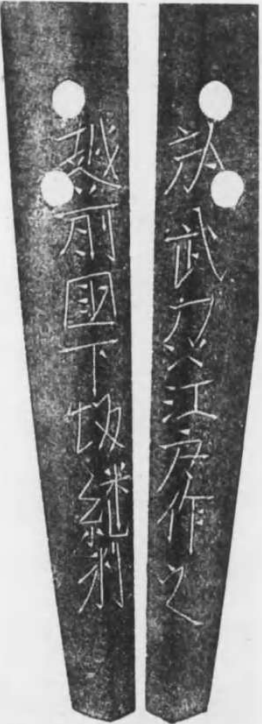 於武刕江戸作之
越前国下坂継利